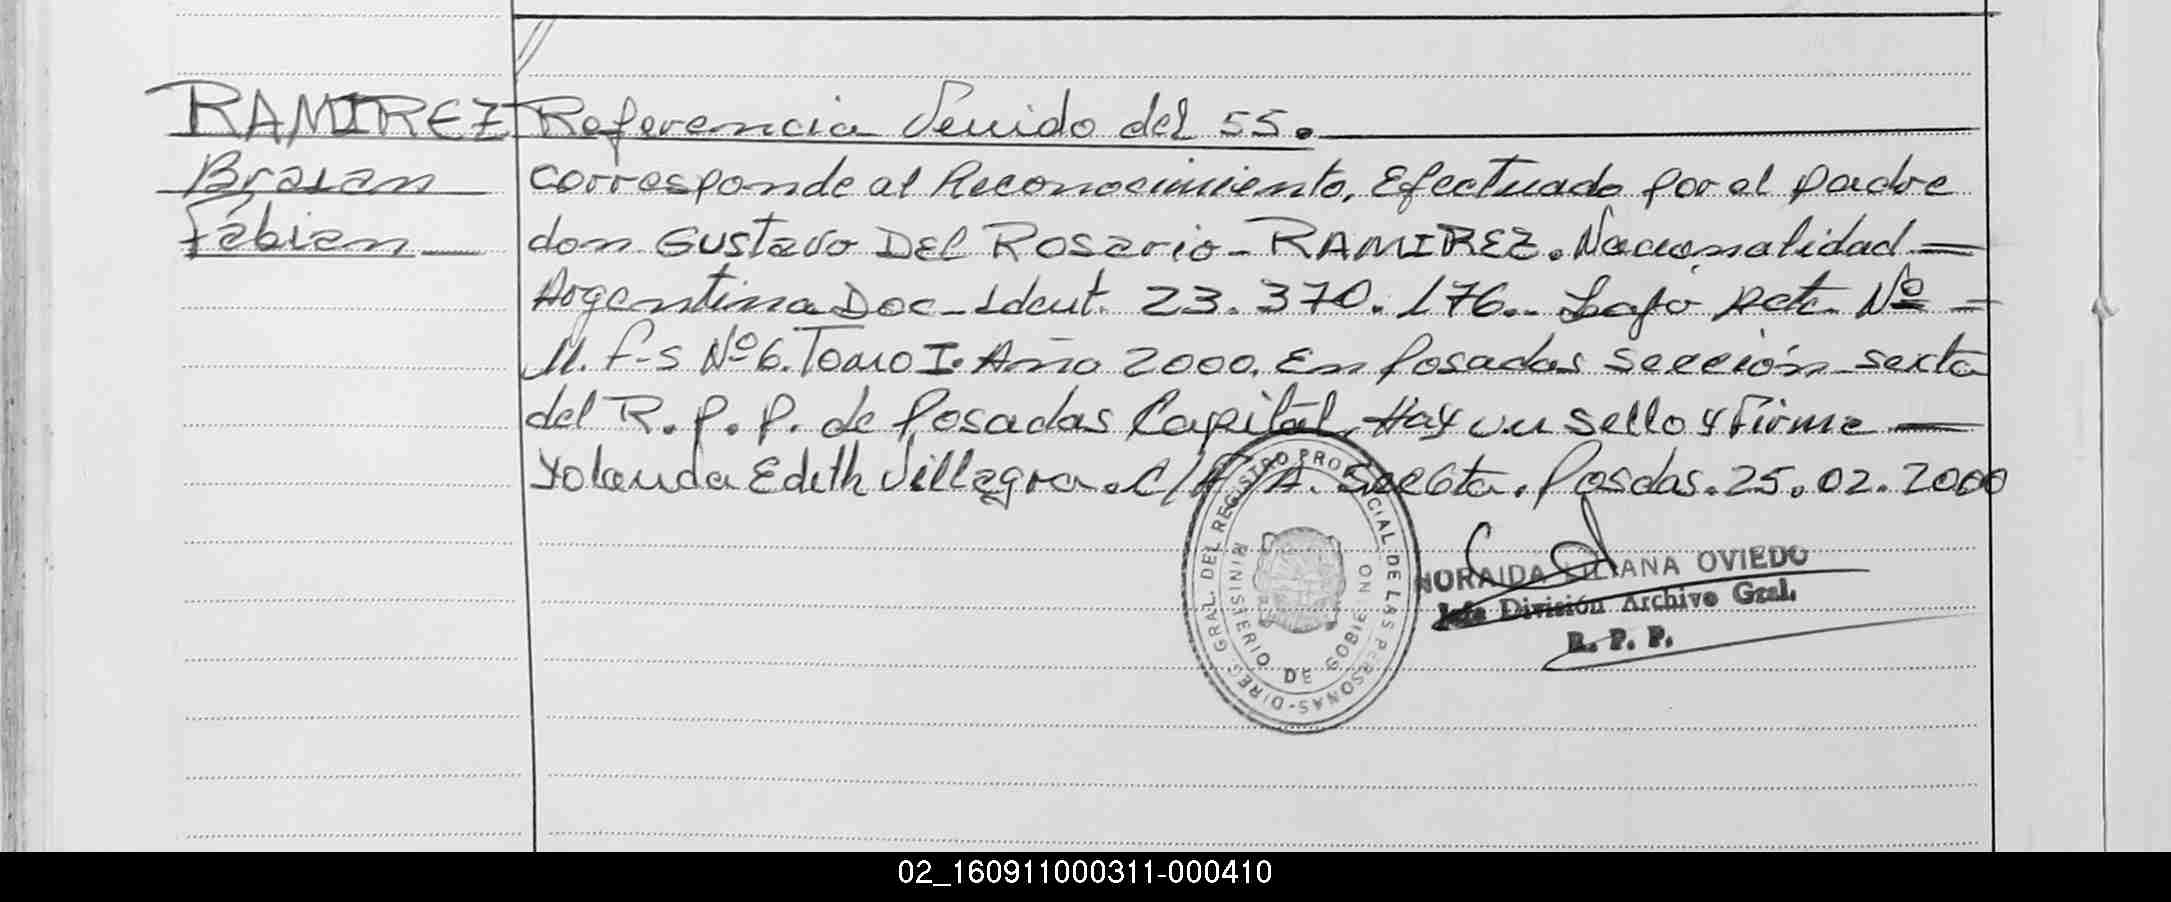 RAMIREZ Referencia Venido del 55.
Braian corresponde al Reconocimiento, Efectuado por el padre
Fabian don Gustavo DEL Rosario - RAMIREZ. Nacionalidad =
Argentina Doc - Ident. 23.370.176.. Bajo Act. Nº -
11. F-S Nº 6. Tomo I. Año 2000. En Posadas Sección sexta
del R.P.P. de Posadas Capital, Hay un sello y Firma —
Yolanda Edith Villagra. Posdas. 25.02.2000
DIREC. GRAL. DEL REGISTRO PROVINCIAL DE LAS PERSONAS -
MINISTERIO DE GOBIERNO
NORAIDA LILIANA OVIEDO
Jefe División Archivo Gral.
R. P. P.
02_160911000311-000410